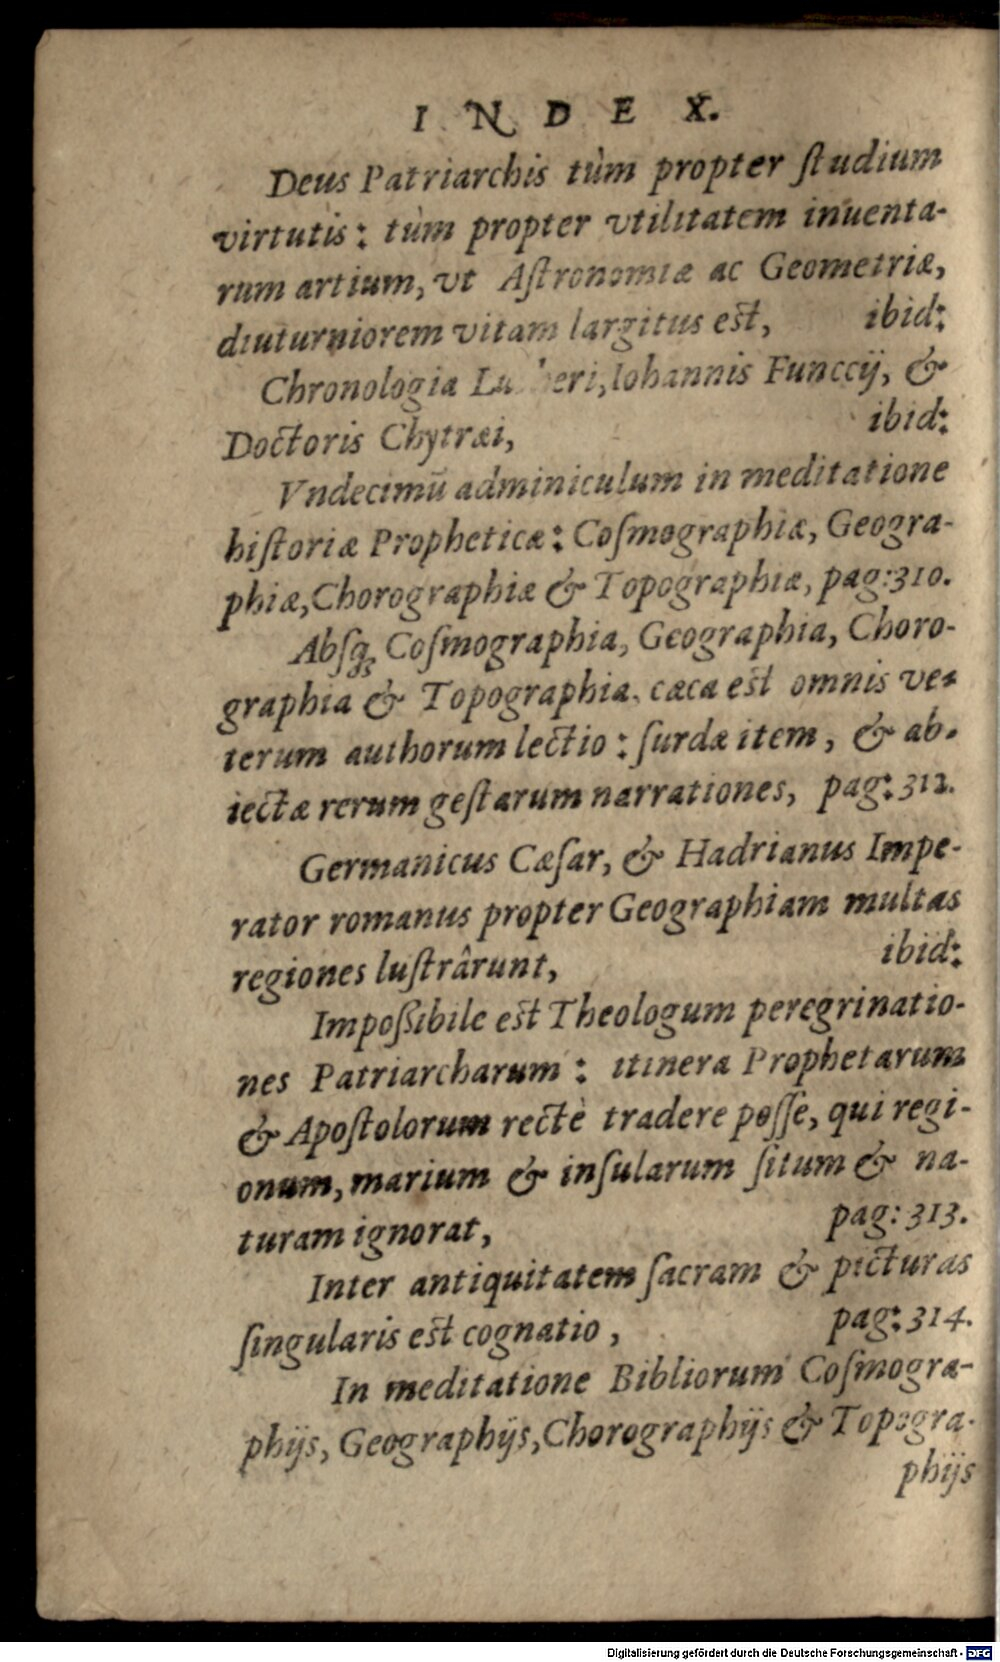 INDEX.
Deus Patriarchis tùm propter ſtudium
virtutis: tùm propter vtilitatem inuenta-
rum artium, vt Aſtronomiæ ac Geometriæ,
diuturniorem vitam largitus eſt, ibid:
Chronologia Iohannis Funccij, &
Doctoris Chytræi, ibid:
Vndecimū adminiculum in meditatione
hiſtoriæ Propheticæ: Coſmographiæ, Geogra-
phiæ, Chorographiæ & Topographiæ, pag:310.
Abſq; Coſmographia, Geographia, Choro-
graphia & Topographia, cæca eſt omnis ve-
terum authorum lectio: ſurdæ item, & ab-
iectæ rerum geſtarum narrationes, pag:312.
Germanicus Cæſar, & Hadrianus Impe-
rator romanus propter Geographiam multas
regiones luſtrârunt, ibid:
Impoßibile eſt Theologum peregrinatio-
nes Patriarcharum: itinera Prophetarum
& Apoſtolorum rectè tradere poſſe, qui regi-
onum, marium & inſularum ſitum & na-
turam ignorat, pag:313.
Inter antiquitatem ſacram & picturas
ſingularis eſt cognatio, pag:314.
In meditatione Bibliorum Coſmogra-
phijs, Geographijs, Chorographijs & Topogra-
phijs
Digitalisierung gefördert durch die Deutsche Forschungsgemeinschaft - DFG